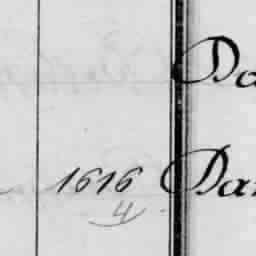 Da
1616 Dan
4